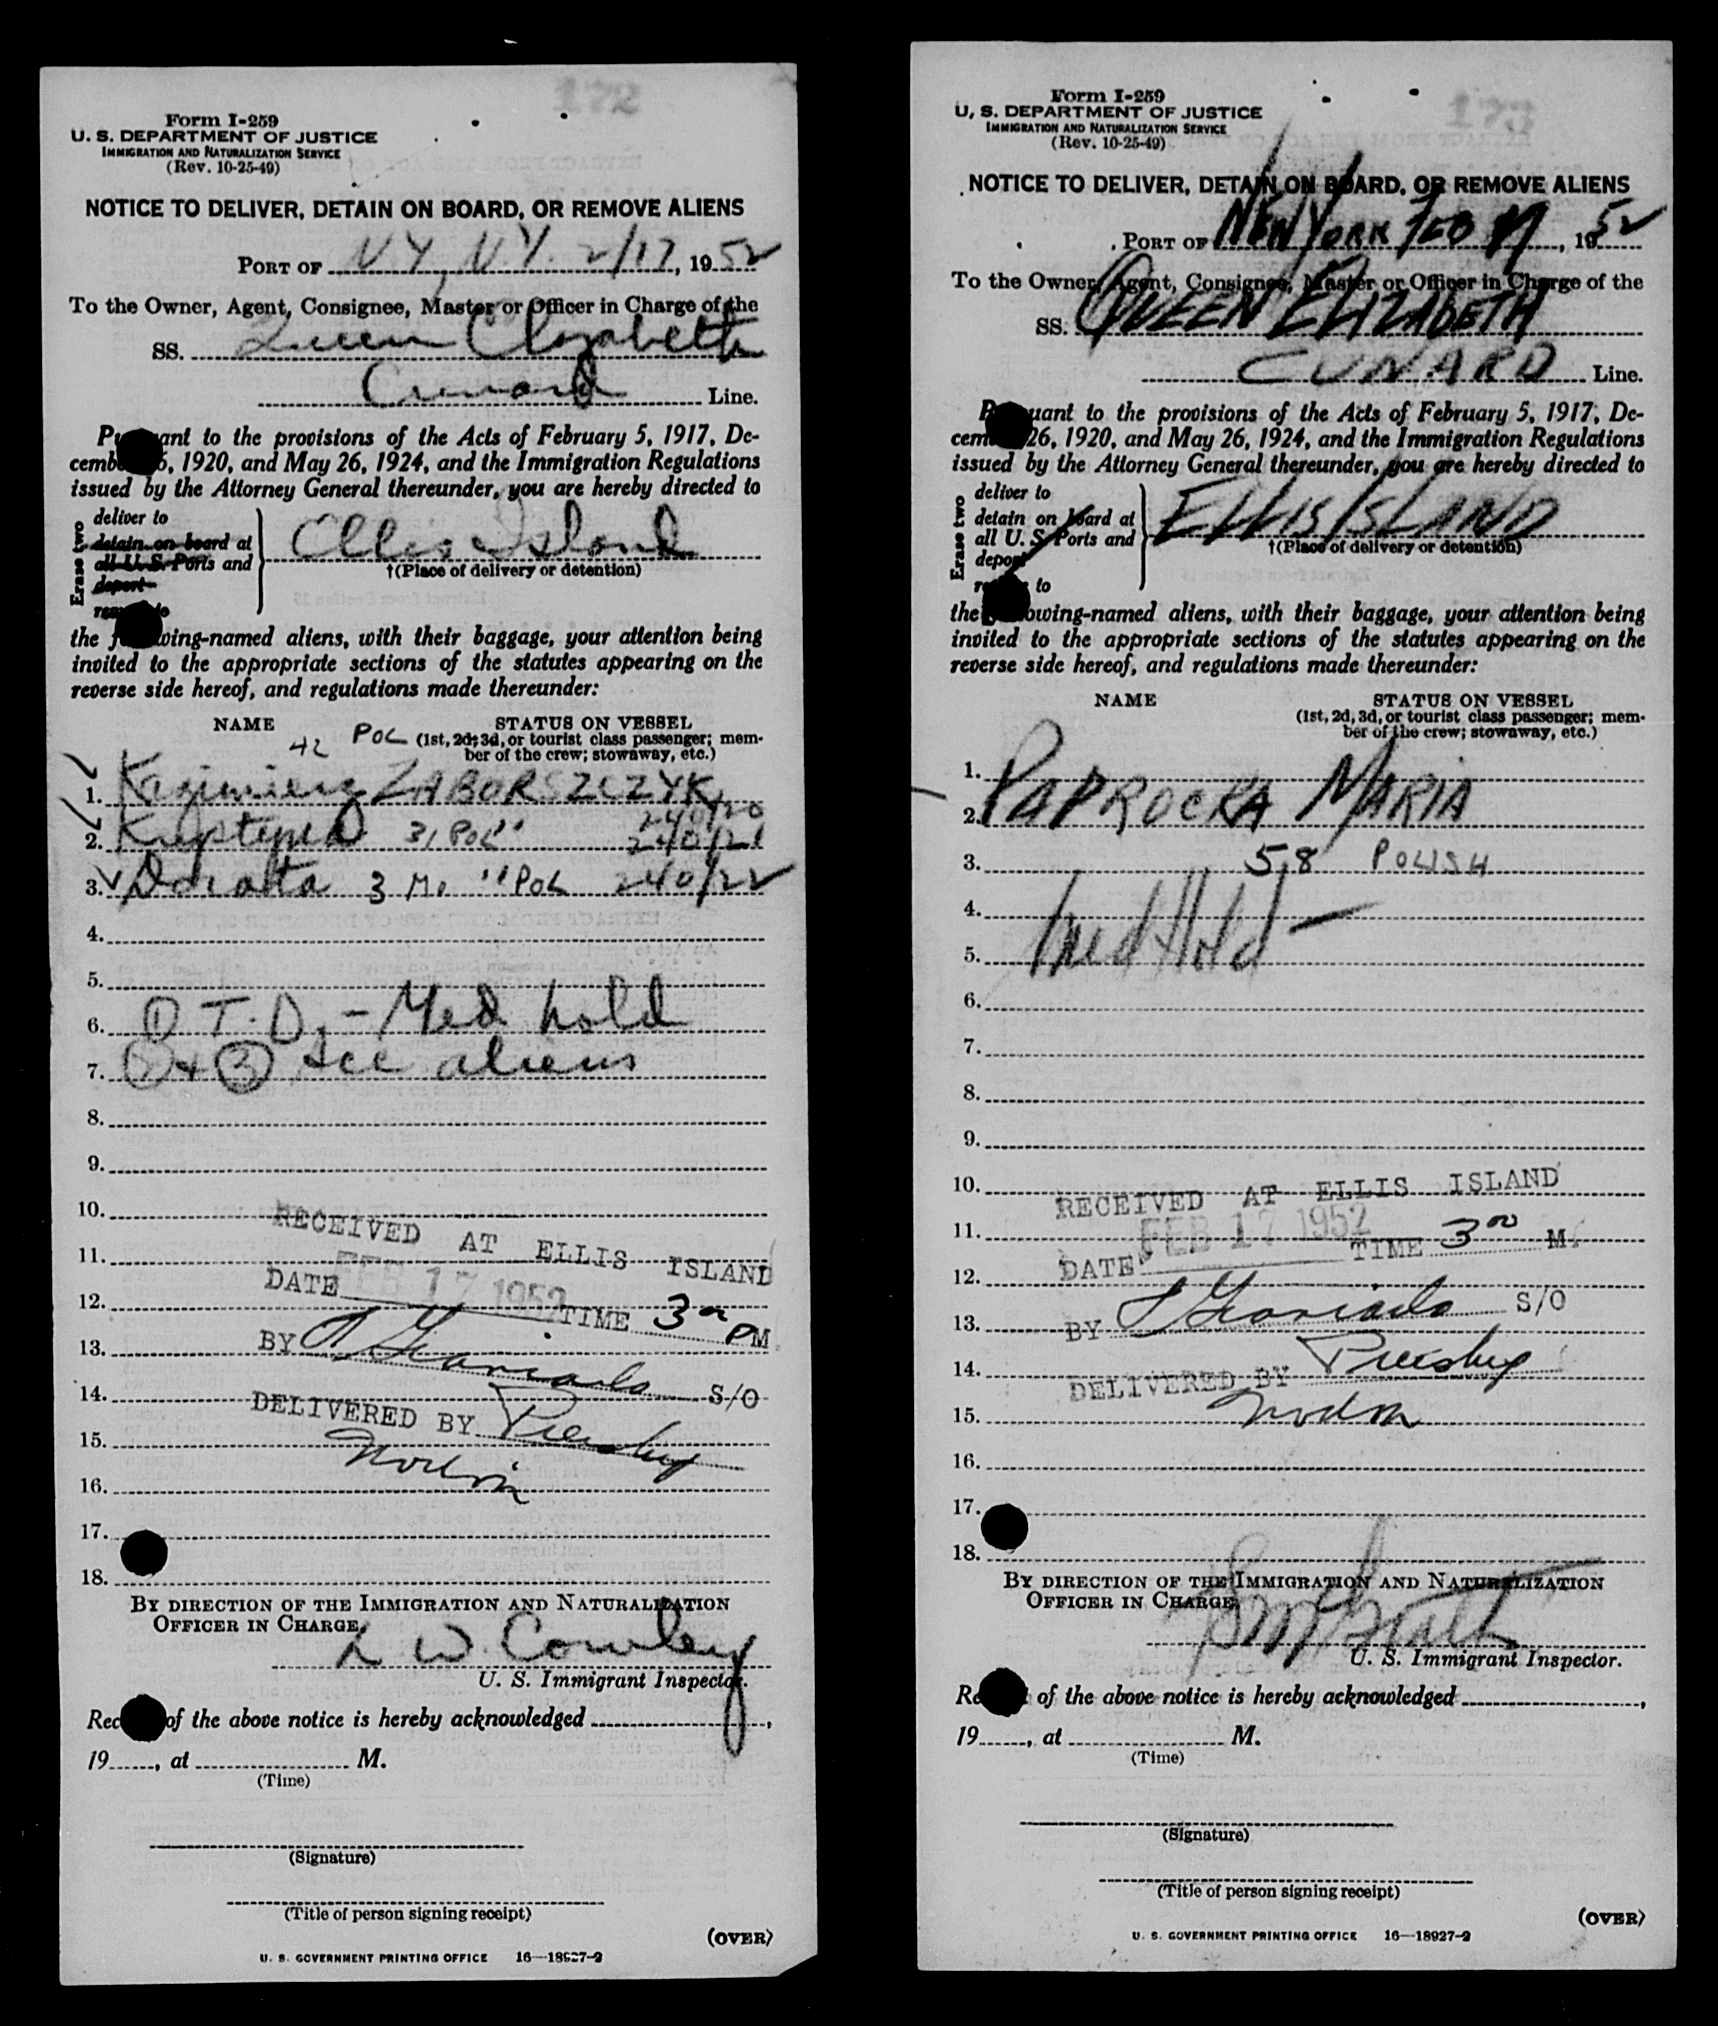 172
Form I-259
U. S. DEPARTMENT OF JUSTICE
IMMIGRATION AND NATURALIZATION SERVICE
(Rev. 10-25-49)
NOTICE TO DELIVER, DETAIN ON BOARD, OR REMOVE ALIENS
PORT OF N.Y, N.Y. 2/17, 1952
To the Owner, Agent, Consignee, Master or Officer in Charge of the
SS. Queen Elizabeth
Cunard Line.
ant to the provisions of the Acts of February 5, 1917, De-
cemb 6, 1920, and May 26, 1924, and the Immigration Regulations
issued by the Attorney General thereunder, you are hereby directed to
Erase two
deliver to
detain on board at
all U. S. Ports and
deport
to
Ellis Island
†(Place of delivery or detention)
the wing-named aliens, with their baggage, your attention being
invited to the appropriate sections of the statutes appearing on the
reverse side hereof, and regulations made thereunder:
NAME STATUS ON VESSEL
42 POL (1st, 2d, 3d, or tourist class passenger; mem-
ber of the crew; stowaway, etc.)
1. Kazimierz ZABORSZCZYK 240/20
2. 31 POL " 240/21
3. Dorota 3 Mo " POL 240/22
4.
5.
6. ① T.D. - Med hold
7. & ③ acc aliens
8.
9.
10.
RECEIVED AT ELLIS ISLAND
11.
DATE FEB 17 1952 TIME 3 00 PM
12.
13. BY S/O
14.
DELIVERED BY
15.
16.
17.
18.
BY DIRECTION OF THE IMMIGRATION AND NATURALIZATION
OFFICER IN CHARGE,
L W. Cowley
U. S. Immigrant Inspector.
Rec of the above notice is hereby acknowledged ,
19 , at M.
(Time)
(Signature)
(Title of person signing receipt)
(OVER)
U. S. GOVERNMENT PRINTING OFFICE 16—18927-2
173
Form I-259
U. S. DEPARTMENT OF JUSTICE
IMMIGRATION AND NATURALIZATION SERVICE
(Rev. 10-25-49)
NOTICE TO DELIVER, DETAIN ON BOARD, OR REMOVE ALIENS
PORT OF NEW YORK FEB 17, 1952
To the Owner, Agent, Consignee, Master or Officer in Charge of the
SS. QUEEN ELIZABETH
CUNARD Line.
uant to the provisions of the Acts of February 5, 1917, De-
cem 26, 1920, and May 26, 1924, and the Immigration Regulations
issued by the Attorney General thereunder, you are hereby directed to
Erase two
deliver to
detain on board at
all U. S. Ports and
deport
to
ELLIS ISLAND
†(Place of delivery or detention)
the owing-named aliens, with their baggage, your attention being
invited to the appropriate sections of the statutes appearing on the
reverse side hereof, and regulations made thereunder:
NAME STATUS ON VESSEL
(1st, 2d, 3d, or tourist class passenger; mem-
ber of the crew; stowaway, etc.)
1.
2. PAPROCKA MARIA
3. 58 POLISH
4.
5. Med Hold —
6.
7.
8.
9.
10.
RECEIVED AT ELLIS ISLAND
11.
DATE FEB 17 1952 TIME 3 00 M.
12.
13. BY S/O
14.
DELIVERED BY
15.
16.
17.
18.
BY DIRECTION OF THE IMMIGRATION AND NATURALIZATION
OFFICER IN CHARGE,
U. S. Immigrant Inspector.
Re of the above notice is hereby acknowledged ,
19 , at M.
(Time)
(Signature)
(Title of person signing receipt)
(OVER)
U. S. GOVERNMENT PRINTING OFFICE 16—18927-2